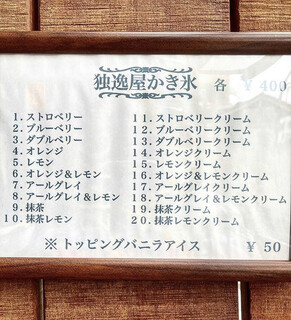 独逸屋かき氷 各 ¥400
1. ストロベリー
2. ブルーベリー
3. ダブルベリー
4. オレンジ
5. レモン
6. オレンジ&レモン
7. アールグレイ
8. アールグレイ&レモン
9. 抹茶
10. 抹茶レモン
11. ストロベリークリーム
12. ブルーベリークリーム
13. ダブルベリークリーム
14. オレンジクリーム
15. レモンクリーム
16. オレンジ&レモンクリーム
17. アールグレイクリーム
18. アールグレイ&レモンクリーム
19. 抹茶クリーム
20. 抹茶レモンクリーム
※トッピングバニラアイス ¥50